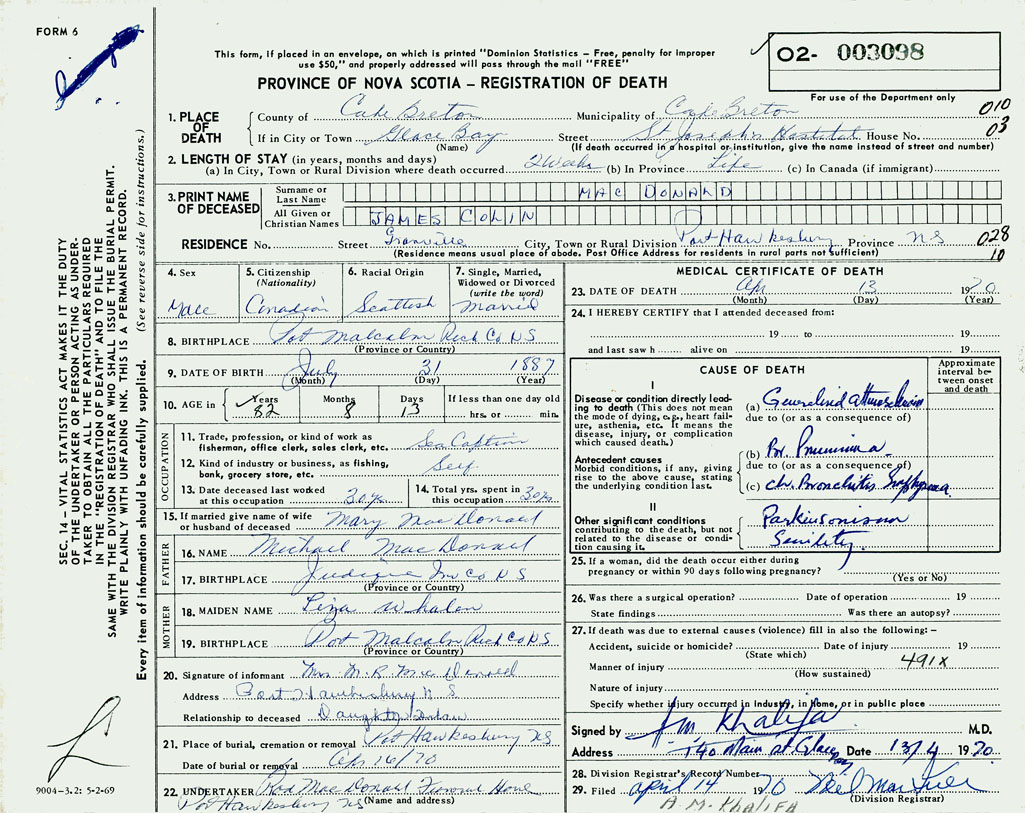 FORM 6
This form, If placed in an envelope, on which is printed "Dominion Statistics – Free, penalty for improper
use $50," and properly addressed will pass through the mail "FREE"
PROVINCE OF NOVA SCOTIA – REGISTRATION OF DEATH
O2- 003098
For use of the Department only
1. PLACE OF DEATH
County of Cape Breton Municipality of Cape Breton 010
If in City or Town Glace Bay Street St Joseph's Hospital House No. 03
(Name) (If death occurred in a hospital or institution, give the name instead of street and number)
2. LENGTH OF STAY (in years, months and days)
(a) In City, Town or Rural Division where death occurred 2 Weeks (b) In Province Life (c) In Canada (if immigrant)
3. PRINT NAME OF DECEASED
Surname or Last Name MAC DONALD
All Given or Christian Names JAMES COLIN
RESIDENCE No. Street Granville City, Town or Rural Division Port Hawkesbury Province NS 028
(Residence means usual place of abode. Post Office Address for residents in rural parts not sufficient) 10
4. Sex
Male
5. Citizenship (Nationality)
Canadian
6. Racial Origin
Scottish
7. Single, Married, Widowed or Divorced (write the word)
Married
8. BIRTHPLACE Port Malcolm Rich Co NS
(Province or Country)
9. DATE OF BIRTH July 31 1887
(Month) (Day) (Year)
10. AGE in Years Months Days If less than one day old
82 8 13 hrs. or min.
OCCUPATION
11. Trade, profession, or kind of work as
fisherman, office clerk, sales clerk, etc. Sea Captain
12. Kind of industry or business, as fishing,
bank, grocery store, etc. Self
13. Date deceased last worked
at this occupation 30 yrs
14. Total yrs. spent in
this occupation 30 yrs
15. If married give name of wife
or husband of deceased Mary MacDonald
FATHER
16. NAME Michael MacDonald
17. BIRTHPLACE Judique Inv Co NS
(Province or Country)
MOTHER
18. MAIDEN NAME Liza Whalen
19. BIRTHPLACE Port Malcolm Rich Co NS
(Province or Country)
20. Signature of informant Mrs M. R. MacDonald
Address Port Hawkesbury N S
Relationship to deceased Daughter Inlaw
21. Place of burial, cremation or removal Port Hawkesbury NS
Date of burial or removal Apr 16/70
22. UNDERTAKER Rod MacDonald Funeral Home
Port Hawkesbury NS (Name and address)
MEDICAL CERTIFICATE OF DEATH
23. DATE OF DEATH Apr 13 1970
(Month) (Day) (Year)
24. I HEREBY CERTIFY that I attended deceased from:
19 to 19
and last saw h alive on 19
CAUSE OF DEATH
Approximate interval between onset and death
I
Disease or condition directly leading
to death (This does not mean
the mode of dying, e.g., heart failure,
asthenia, etc. It means the
disease, injury, or complication
which caused death.)
(a) Generalized
due to (or as a consequence of)
Antecedent causes
Morbid conditions, if any, giving
rise to the above cause, stating
the underlying condition last.
(b) Br. Pneumonia
due to (or as a consequence of)
(c) Ch. Bronchitis Emphysema
II
Other significant conditions
contributing to the death, but not
related to the disease or condition
causing it.
Parkinsonism
Senility
25. If a woman, did the death occur either during
pregnancy or within 90 days following pregnancy?
(Yes or No)
26. Was there a surgical operation? Date of operation 19
State findings Was there an autopsy?
27. If death was due to external causes (violence) fill in also the following: –
Accident, suicide or homicide? Date of injury 19
(State which) 491X
Manner of injury
(How sustained)
Nature of injury
Specify whether injury occurred in Industry, in Home, or in public place
Signed by A.M. Khalifa M.D.
Address 140 Main St Glace Bay Date 13/4 1970
28. Division Registrar's Record Number
29. Filed April 14 1970
(Division Registrar)
A M. KHALIFA
SEC. 14 – VITAL STATISTICS ACT MAKES IT THE DUTY
OF THE UNDERTAKER OR PERSON ACTING AS UNDER-
TAKER TO OBTAIN ALL THE PARTICULARS REQUIRED
IN THE "REGISTRATION OF DEATH" AND TO FILE THE
SAME WITH THE DIVISION REGISTRAR WHO SHALL ISSUE THE BURIAL PERMIT.
WRITE PLAINLY WITH UNFADING INK. THIS IS A PERMANENT RECORD.
Every item of information should be carefully supplied. (See reverse side for instructions.)
9004-3.2: 5-2-69